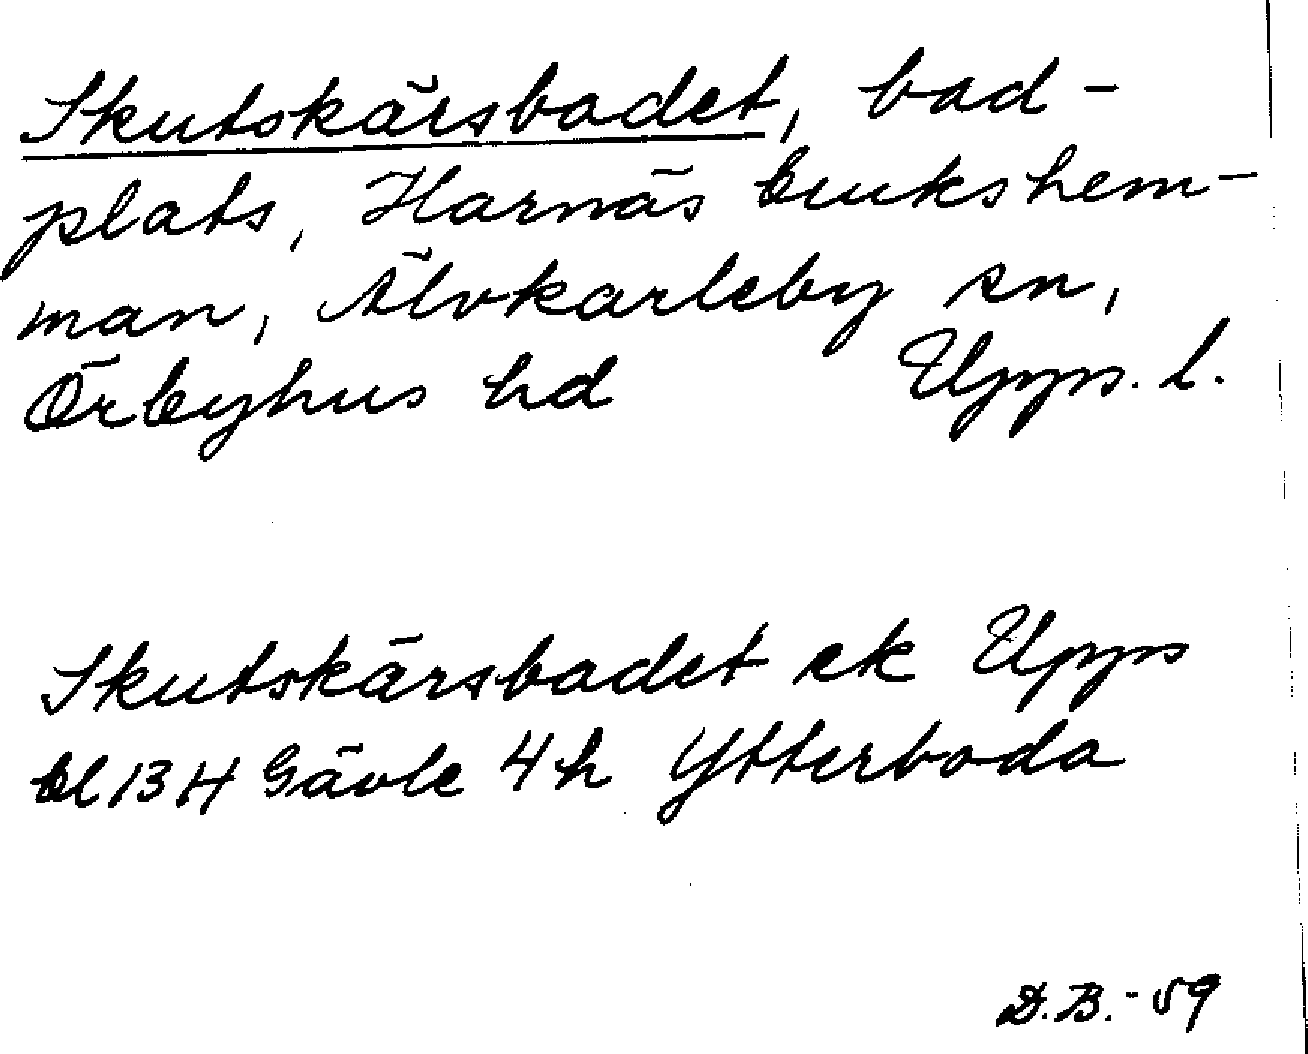 Skutskärsbadet, bad-
plats, Harnäs brukshem-
man, Älvkarleby sn,
Örbyhus hd Upps. l.
Skutskärsbadet ek Upps
bl 13 H Gävle 4h Ytterboda
D.B.-59